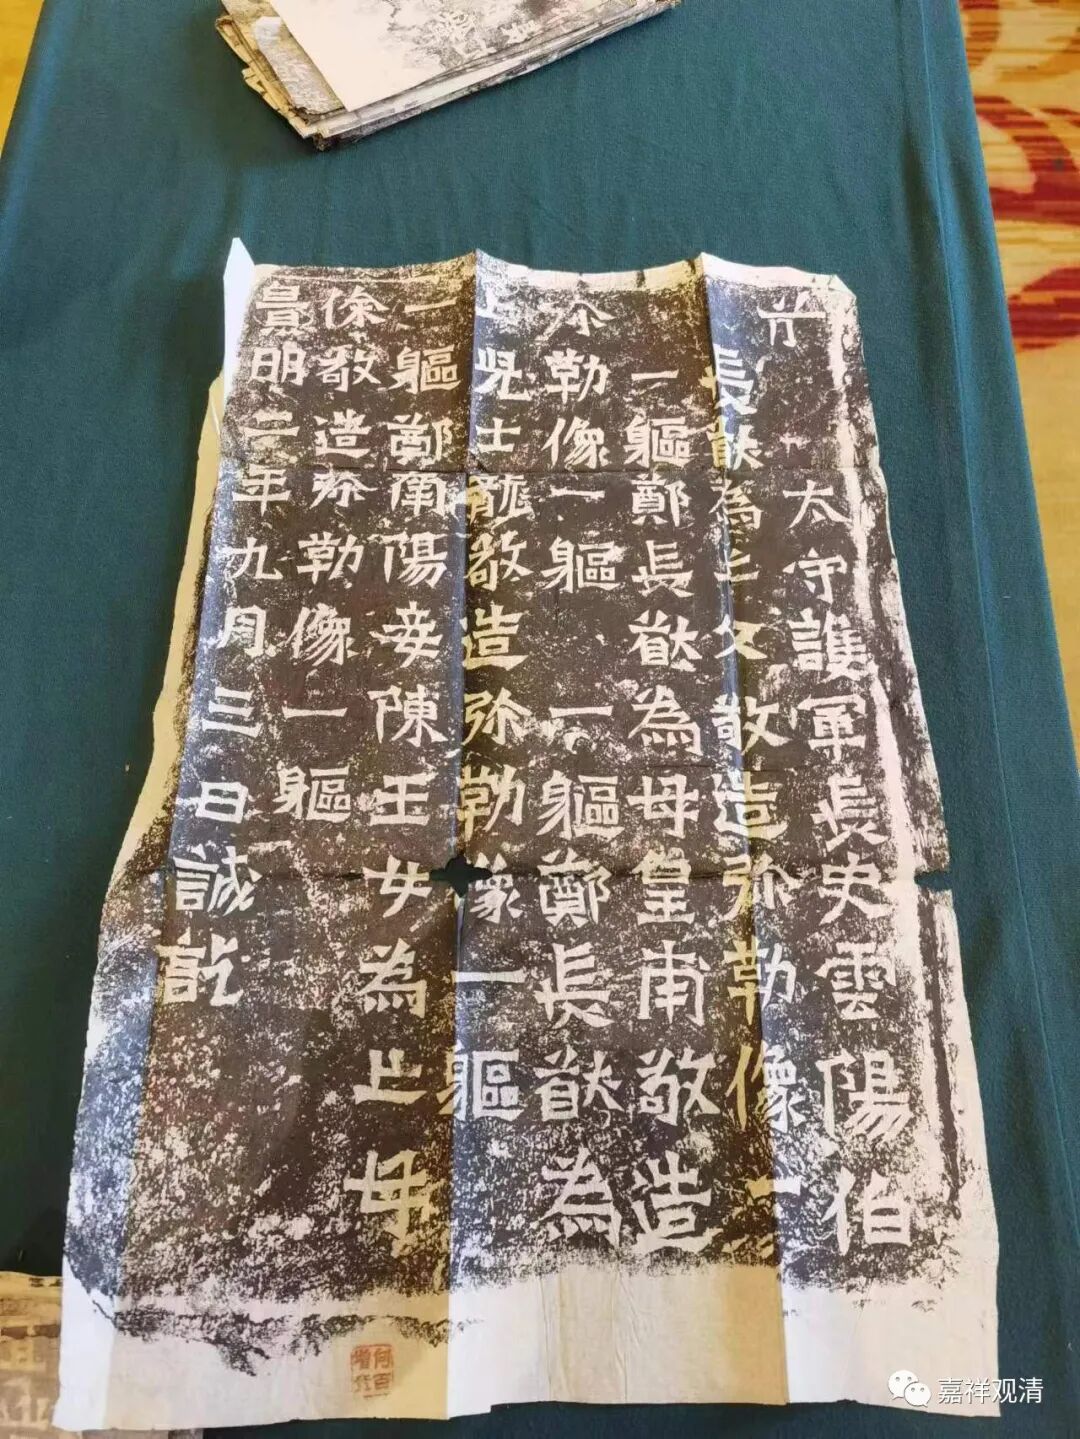 太守護軍長史雲陽伯
長猷為亡父敬造弥勒像一
一軀鄭長猷為母皇甫敬造
弥勒像一軀一軀鄭長猷為
亡兒士龍敬造弥勒像一軀
一軀鄭南陽妾陳玉女為亡母
徐敬造弥勒像一軀
景明二年九月三日誡訖
嘉祥观清